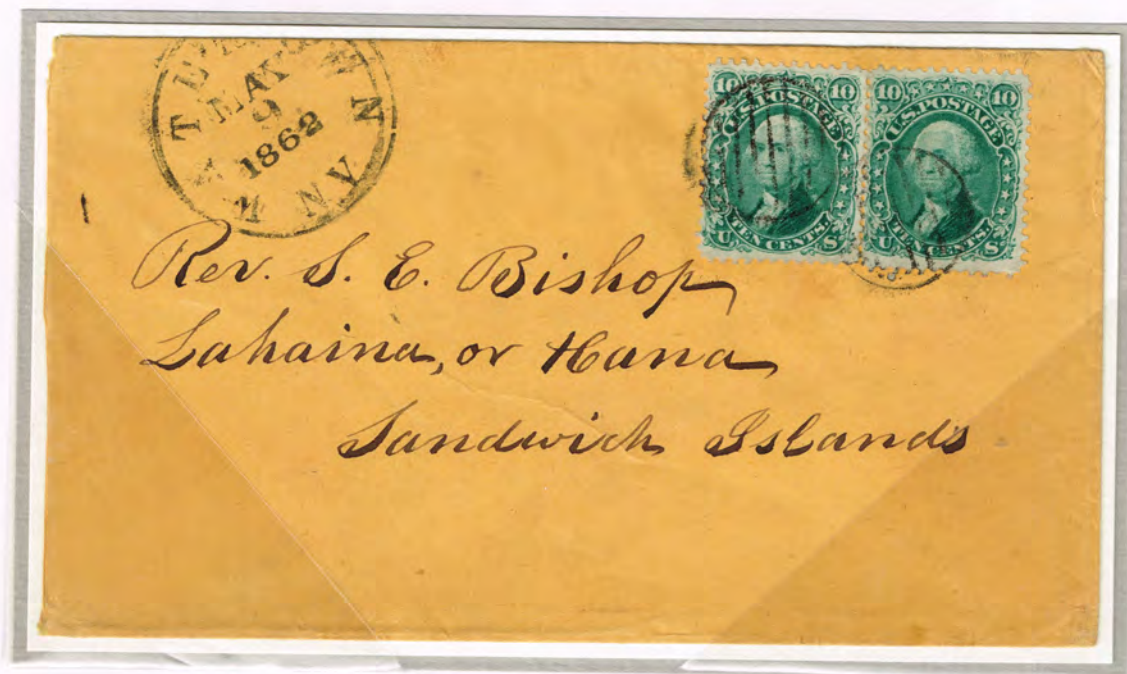 MAY
9
1862
10 10
U.S. POSTAGE
TEN CENTS.
U S
10 10
U.S. POSTAGE
TEN CENTS.
U S
Rev. S. E. Bishop
Lahaina, or Hana
Sandwich Islands